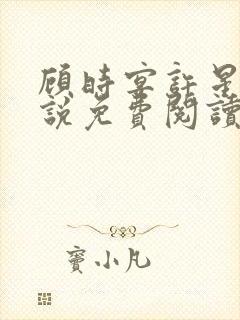 顾時宴許是
說免費閱讀
竇小凡